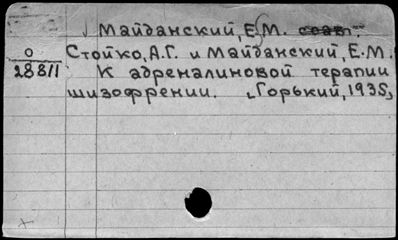 Майданский, Е. М. соавт.
О
28811
Стойко, А.Г. и Майданский, Е.М.
К адреналиновой терапии
шизофрении. Горький, 1935,